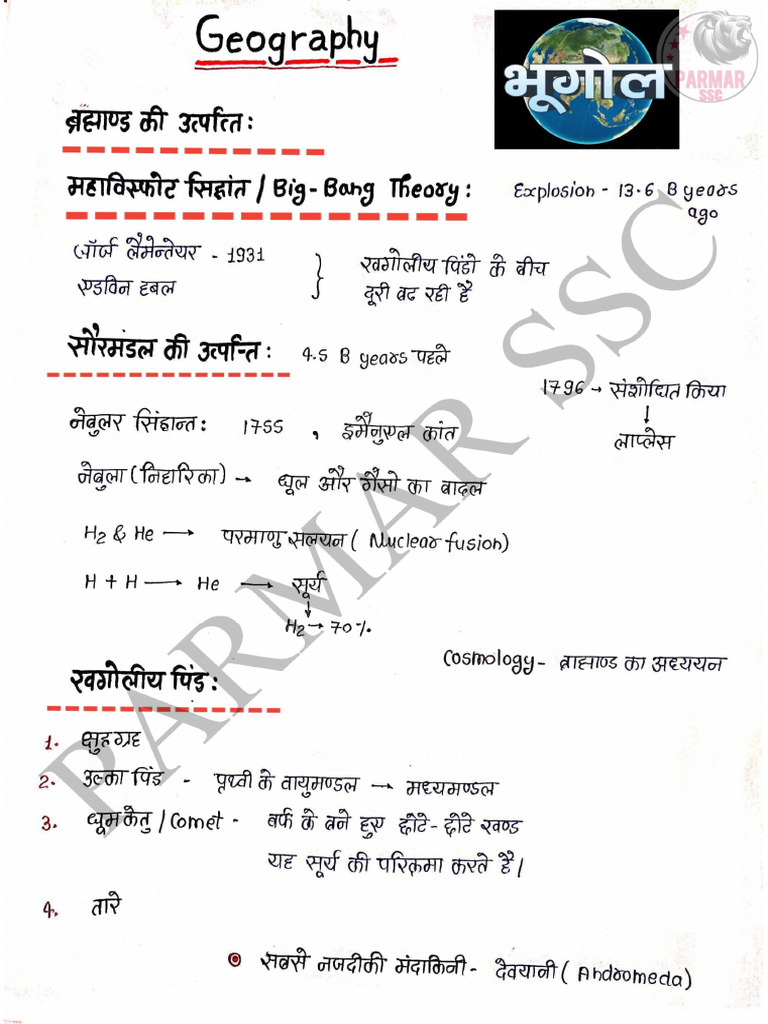 Geography
भूगोल
PARMAR
SSC
ब्रह्माण्ड की उत्पत्ति:
महाविस्फोट सिद्धांत / Big-Bang Theory: Explosion - 13.6 B years ago
जॉर्ज लैमेन्तेयर - 1931 } खगोलीय पिंडो के बीच
एडविन हबल } दूरी बढ रही है
सौरमंडल की उत्पत्ति: 4.5 B years पहले
1796 → संशोधित किया
↓
लाप्लेस
नेबुलर सिद्दान्त: 1755 , इमैनुएल कांत
नेबुला (निहारिका) → धूल और गैसो का बादल
H2 & He → परमाणु सलयन ( Nuclear fusion)
H + H → He → सूर्य
↓
H2 → 70%
Cosmology - ब्राह्माण्ड का अध्ययन
खगोलीय पिंड:
1. क्षुद्रग्रह
2. उल्का पिंड - पृथ्वी के वायुमण्डल → मध्यमण्डल
3. धूमकेतु / Comet - बर्फ के बने हुए छोटे-छोटे खण्ड
यह सूर्य की परिक्रमा करते है।
4. तारे
सबसे नजदीकी मंदाकिनी - देवयानी ( Andromeda)
PARMAR SSC